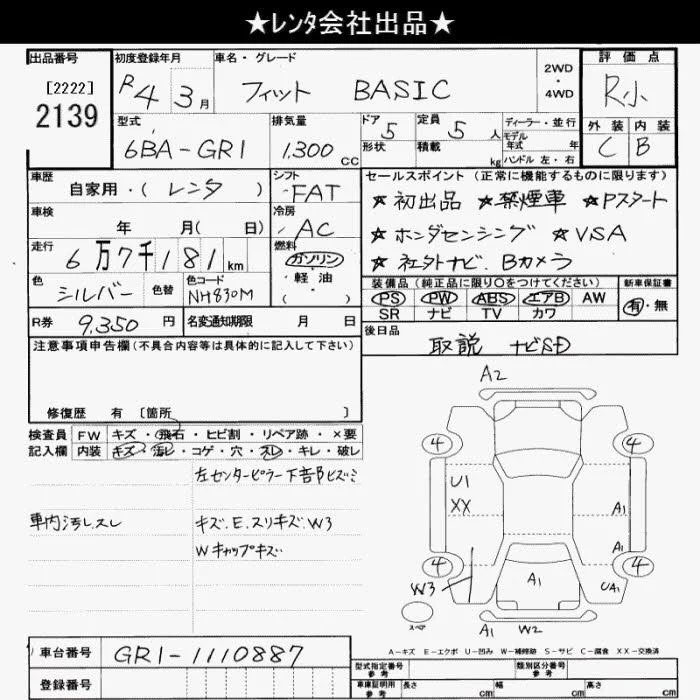 ★レンタ会社出品★
出品番号
[2222]
2139
初度登録年月
R4年3月
車名・グレード
フィット BASIC
2WD
・
4WD
評価点
R小
外装 内装
C B
型式
6BA-GR1
排気量
1,300 cc
ドア 5
形状
定員 5 人
積載 kg
ディーラー・並行
モデル年式 年
ハンドル 左・右
車歴
自家用・(レンタ)
シフト
FAT
車検
年 月(日)
冷房
AC
走行
6万7千181km
燃料
ガソリン
・軽油・
( )
色
シルバー
色替
色コード
NH830M
R券 9,350円
名変通知期限 月 日
セールスポイント (正常に機能するものに限ります)
★初出品 ★禁煙車 ★Pスタート
★ホンダセンシング ★VSA
★社外ナビ.Bカメラ
装備品(純正品に限り〇をつけてください)
PS PW ABS エアB AW
SR ナビ TV カワ
新車保証書
有・無
後日品
取説 ナビSD
注意事項申告欄(不具合内容等は具体的に記入して下さい)
修復歴 有 [箇所 ]
検査員記入欄
FW キズ・飛石・ヒビ割・リペア跡・×要
内装 キズ・汚レ・コゲ・穴・スレ・キレ・破レ
左センターピラー下部ヒズミ
車内汚レ.スレ
キズ.E.スリキズ.W3
Wキャップキズ
A2
4 4
U1
XX
A1
A1
4 4
W3
A1
UA1
スペア
A1 W2
A-キズ E-エクボ U-凹み W-補修跡 S-サビ C-腐食 XX-交換済
車台番号 GR1-1110887
登録番号
型式指定番号
参考
類別区分番号
参考
車庫証明用
参考
長さ cm 幅 cm 高さ cm